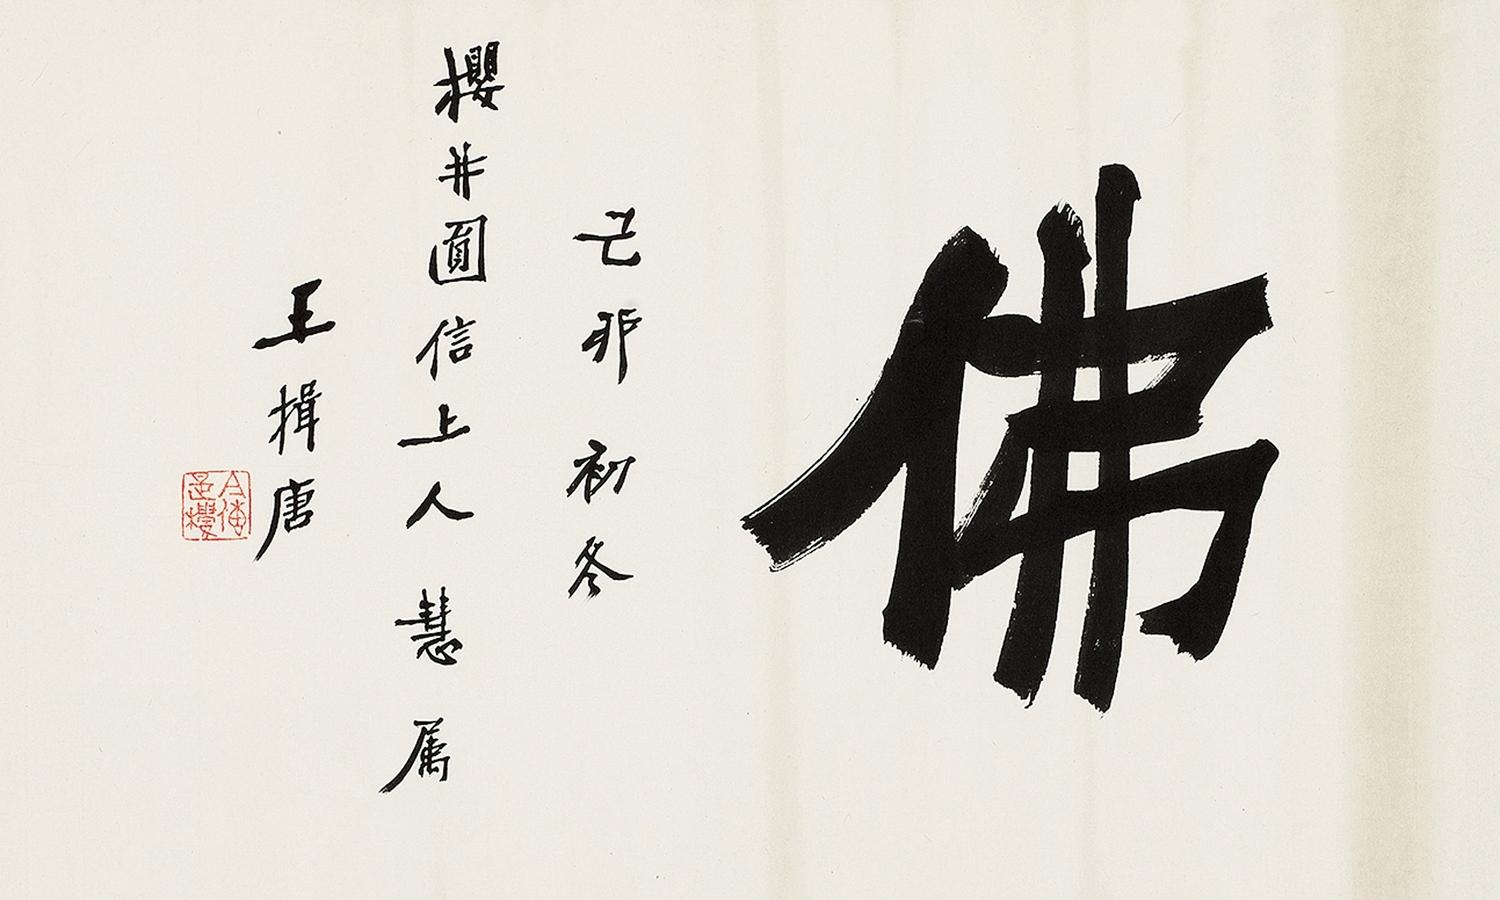 佛
己卯初冬
櫻井圓信上人慧属
王揖唐